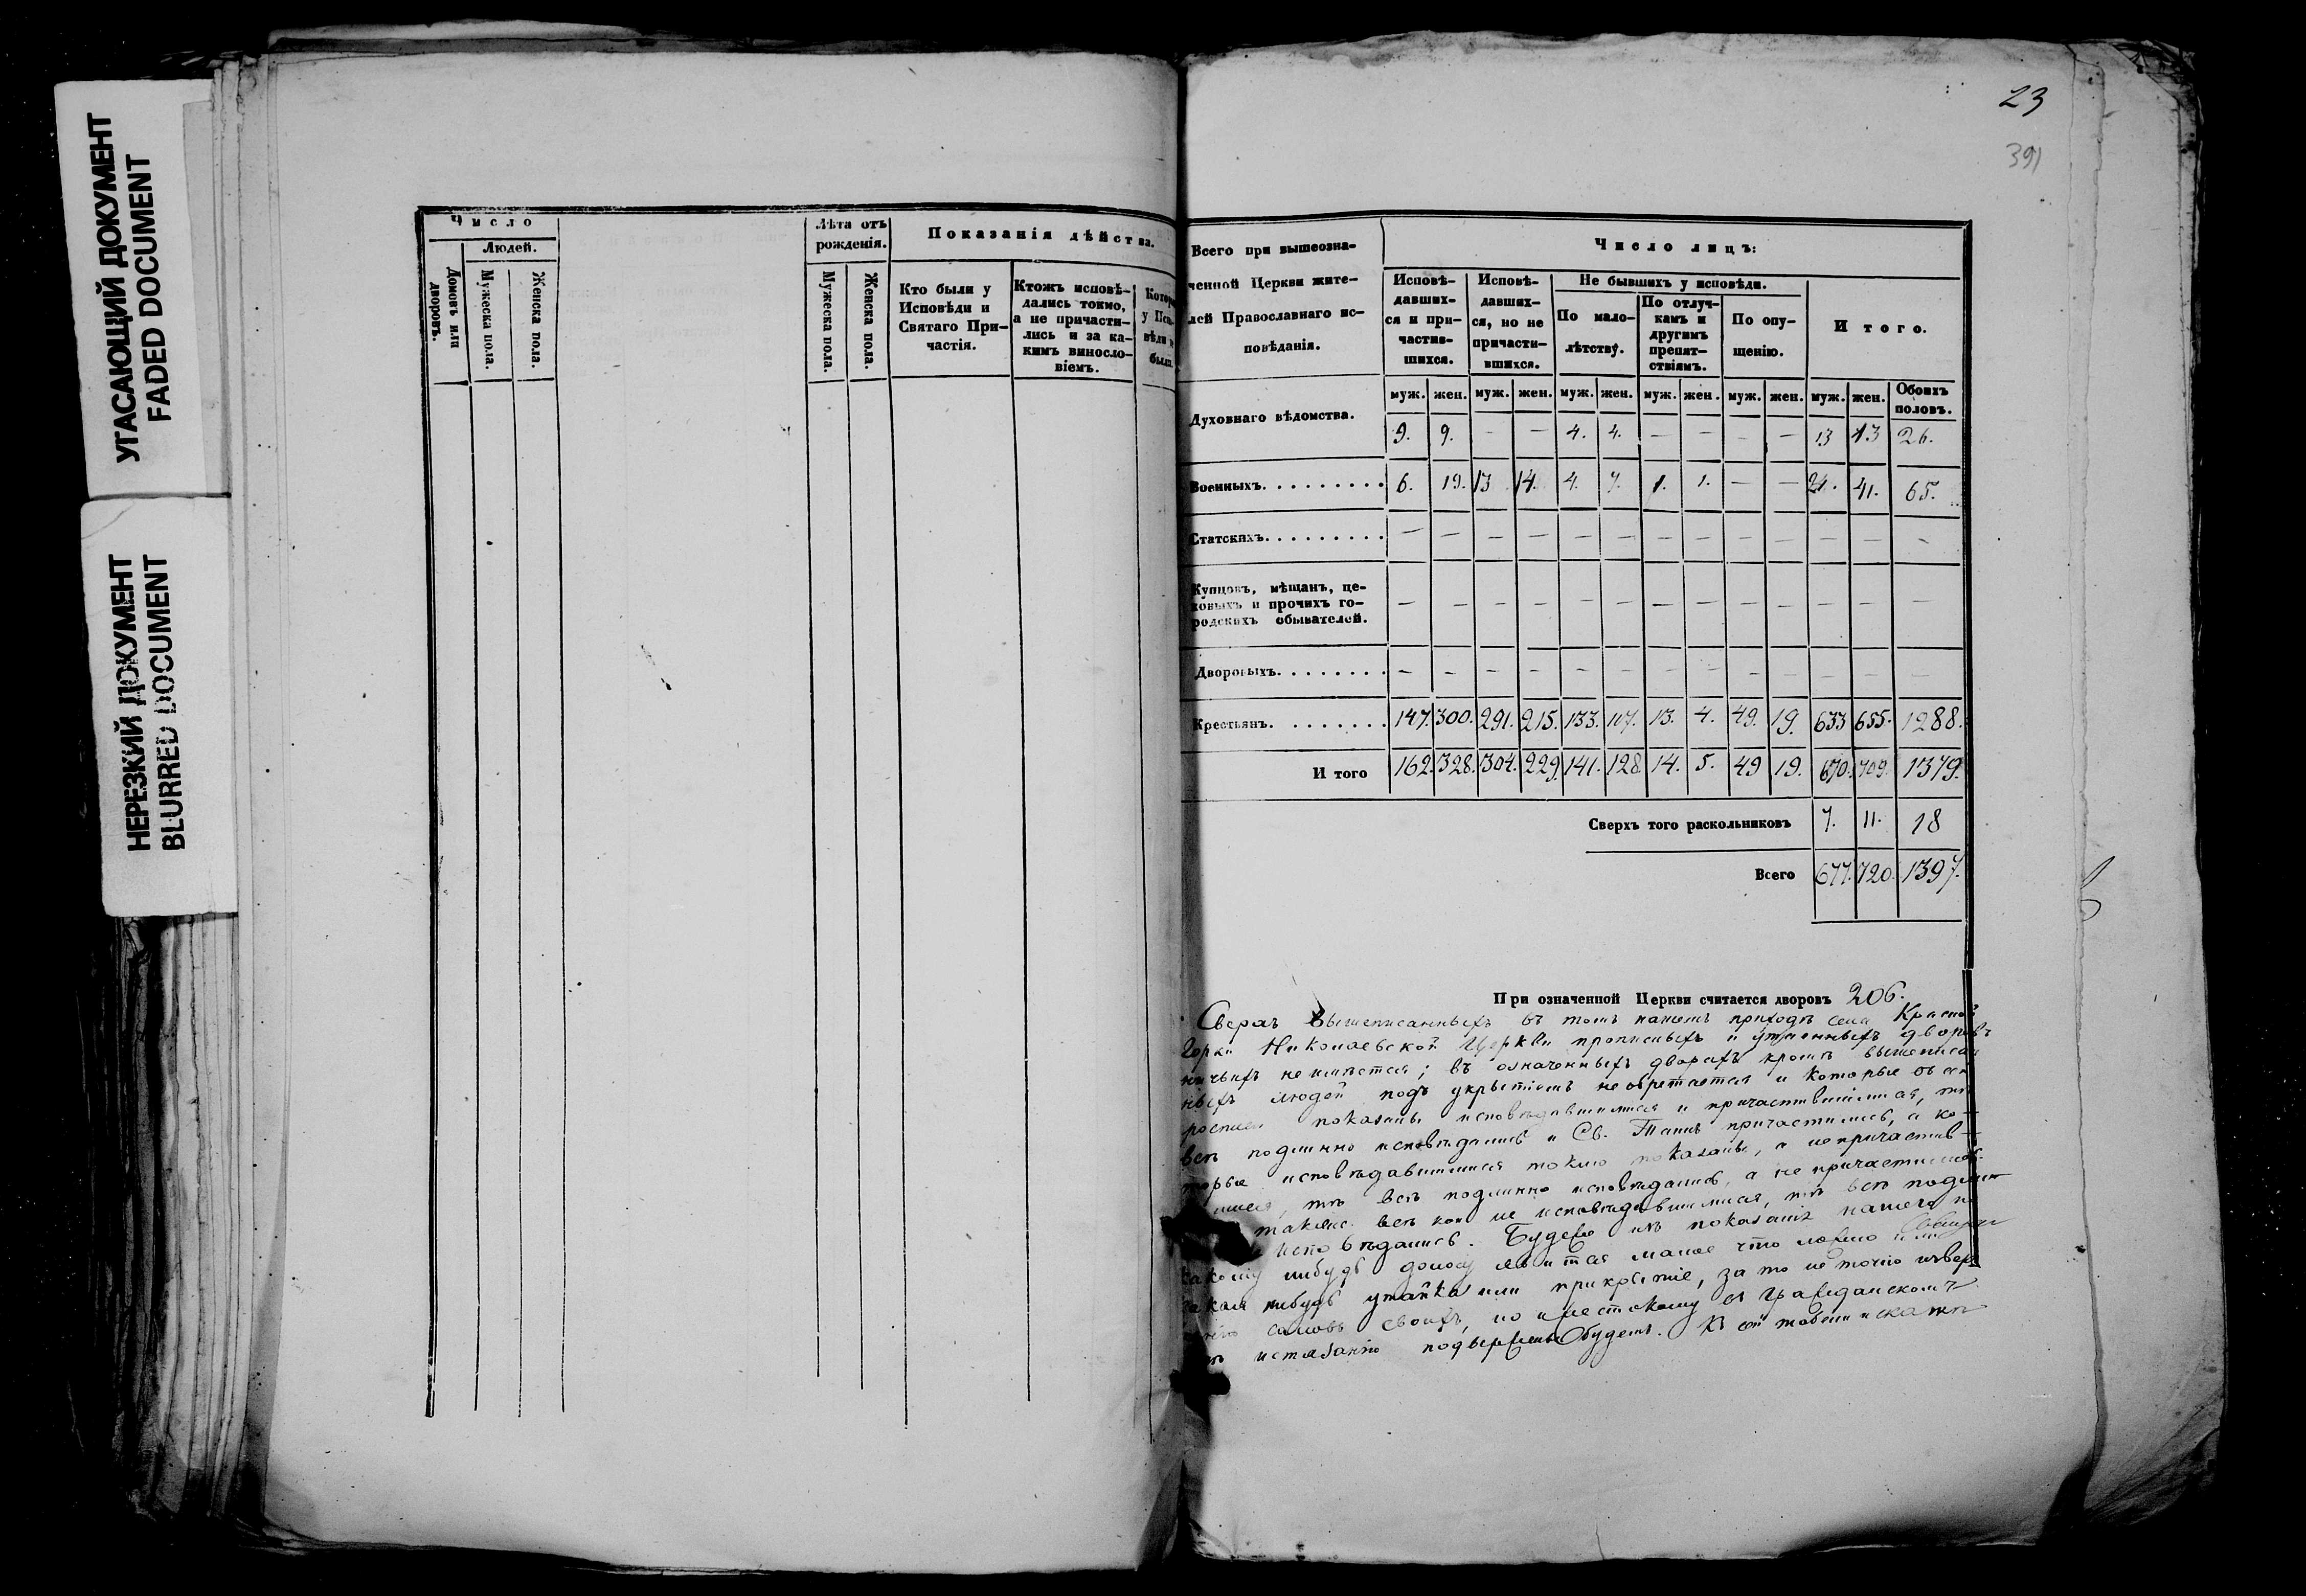 УГАСАЮЩИЙ ДОКУМЕНТ
FADED DOCUMENT
НЕРЕЗКИЙ ДОКУМЕНТ
BLURRED DOCUMENT
Число
Людей.
Домовъ или дворовъ.
Мужеска пола.
Женска пола.
Лѣта отъ
рожденія.
Мужеска пола.
Женска пола.
Показанія дѣйства.
Кто были у
Исповѣди и
Святаго При-
частія.
Ктожъ исповѣ-
дались токмо,
а не причасти-
лись и за ка-
кимъ виносло-
віемъ.
23
391
Всего при вышеозна-
ченной Церкви жите-
лей Православнаго ис-
повѣданія.
Число лицъ:
Исповѣ-
давших-
ся и при-
частив-
шихся.
Исповѣ-
давших-
ся, но не
причасти-
вшихся.
Не бывшихъ у исповѣди.
По мало-
лѣтству.
По отлуч-
камъ и
другимъ
препят-
ствіямъ.
По опу-
щенію.
Итого.
муж. жен. муж. жен. муж. жен. муж. жен. муж. жен. муж. жен. Обоихъ половъ.
Духовнаго вѣдомства. 9. 9. — — 4. 4. — — — — 13 13 26.
Военныхъ. 6. 19. 13 14. 4. 7. 1. 1. — — 24. 41. 65.
Статскихъ. — — — — — — — — — — — — —
Купцовъ, мѣщанъ, це-
ховыхъ и прочихъ го-
родскихъ обывателей. — — — — — — — — — — — — —
Дворовыхъ. — — — — — — — — — — — — —
Крестьянъ. 147. 300. 291. 215. 133. 117. 13. 4. 49. 19. 633 655. 1288.
И того 162. 328. 304. 229. 141. 128. 14. 5. 49 19. 670. 709. 1379.
Сверхъ того раскольниковъ 7. 11. 18
Всего 677. 720. 1397.
При означенной Церкви считается дворовъ 206.
Сверхъ вышеписанныхъ въ томъ нашемъ приходѣ села Красной
Горки Николаевской Церкви прописныхъ и утаенныхъ дворовъ
ничьихъ не имѣется; въ означенныхъ дворахъ кромѣ вышеписан
ныхъ людей подъ укрытіемъ не обретается и которые въ сей
росписи показаны исповѣдавшимися и причастившимися, тѣ
всѣ подлинно исповѣдались и Св. Таинъ причастились, а ко-
торые исповѣдавшимися токмо показаны, а не причастив-
шимися, тѣ всѣ подлинно исповѣдались, а не причастились.
также всѣ кои не исповѣдавшимися, тѣ всѣ подлин
исповѣдались. Будеже изъ показанія нашего по
какому нибудь доносу явится малое что ложно или
какая нибудь утайка или прикрытіе, за то не точно изверже
нію сановъ своихъ, но и жестокому въ Гражданскомъ
истязанію подвержены будемъ. Къ сей